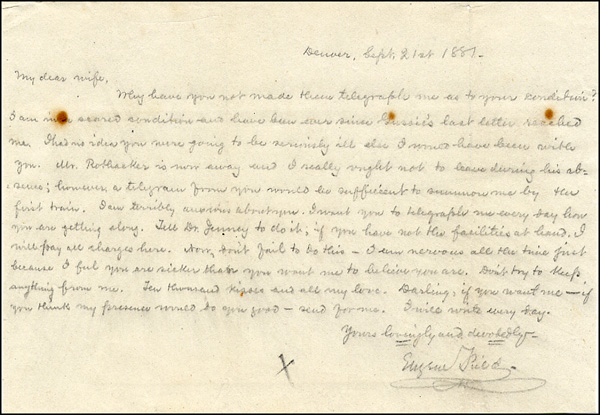 Denver, Sept. 21st 1881.
My dear wife,
Why have you not made them telegraph me as to your condition?
I am in a scared condition and have been ever since Gussie's last letter reached
me. I had no idea you were going to be seriously ill else I would have been with
you. Mr. Rothacker is now away and I really ought not to leave during his ab-
sence; however a telegram from you would be sufficient to summon me by the
first train. I am terribly anxious about you. I want you to telegraph me every day how
you are getting along. Tell Dr. Jenney to do it, if you have not the facilities at hand. I
will pay all charges here. Now, don't fail to do this – I am nervous all the time just
because I feel you are sicker than you want me to believe you are. Don't try to keep
anything from me. Ten thousand kisses and all my love. Darling, if you want me – if
you think my presence would do you good – send for me. I will write every day.
Yours lovingly and devotedly –
Eugene Field.
X